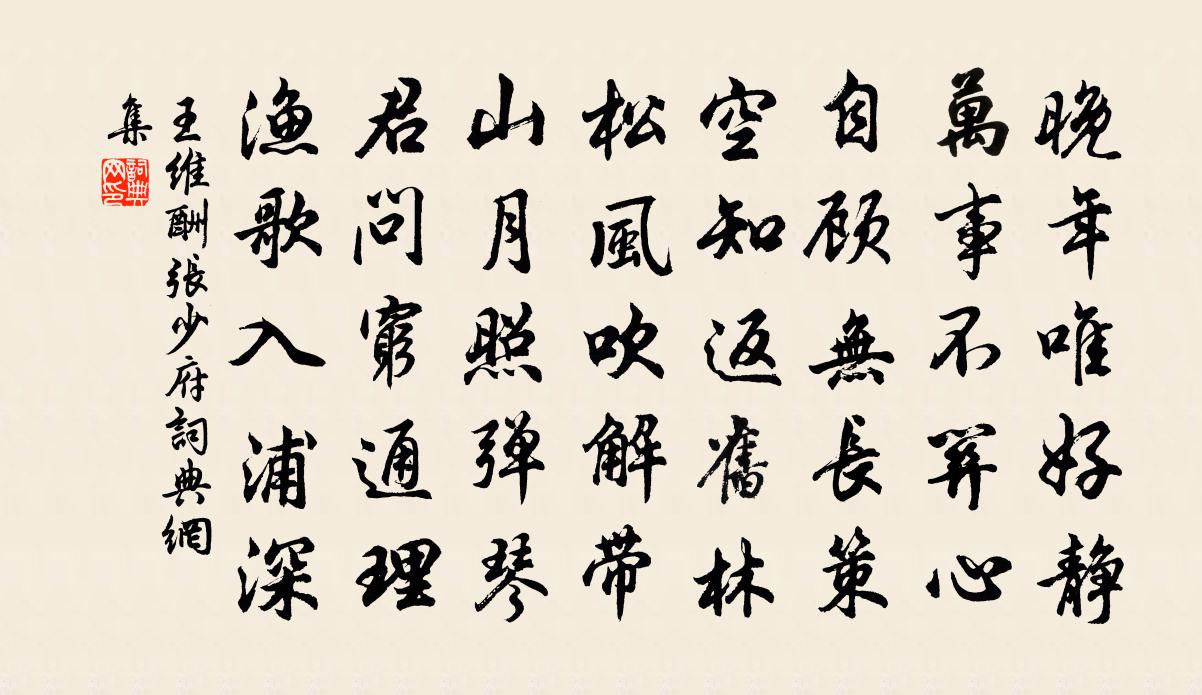 晚年唯好静
萬事不関心
自顾無長策
空知返舊林
松風吹解带
山月照弹琴
君問窮通理
漁歌入浦深
王維酬張少府詞典網
集
詞典網印